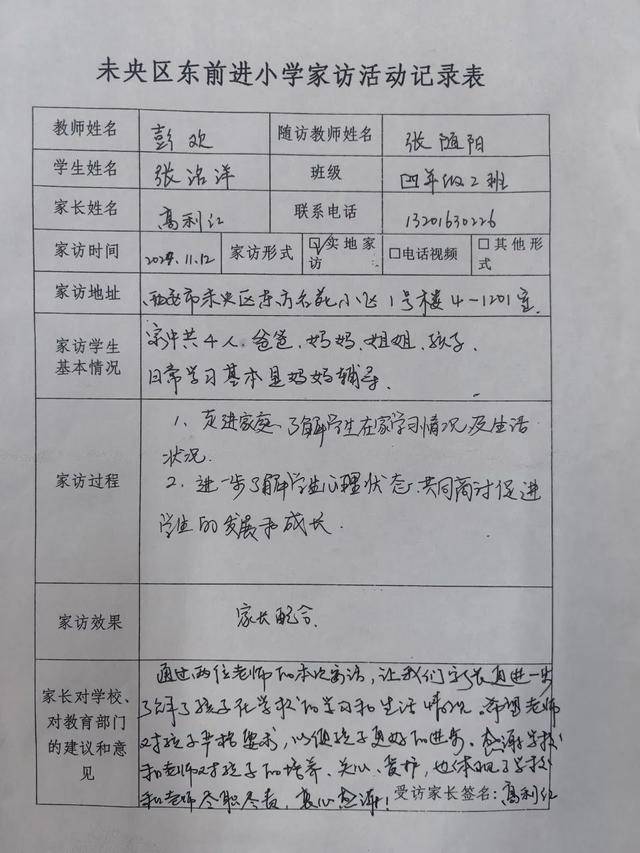 未央区东前进小学家访活动记录表
教师姓名 彭欢 随访教师姓名 张随阳
学生姓名 张洺洋 班级 四年级2班
家长姓名 高利红 联系电话 13201630226
家访时间 2024.11.12 家访形式 ☑实地家访 □电话视频 □其他形式
家访地址 西安市未央区东方名苑小区1号楼4-1201室
家访学生基本情况
家中共4人,爸爸、妈妈、姐姐、孩子.
日常学习基本是妈妈辅导.
家访过程
1、走进家庭,了解学生在家学习情况及生活
状况.
2、进一步了解学生心理状态,共同商讨促进
学生的发展和成长.
家访效果 家长配合.
家长对学校、对教育部门的建议和意见
通过两位老师的本次家访,让我们家长更进一步
了解了孩子在学校的学习和生活情况。希望老师
对孩子严格要求,以便孩子更好的进步。感谢学校
和老师对孩子的培养、关心、爱护,也体现了学校
和老师尽职尽责,衷心感谢!
受访家长签名:高利红